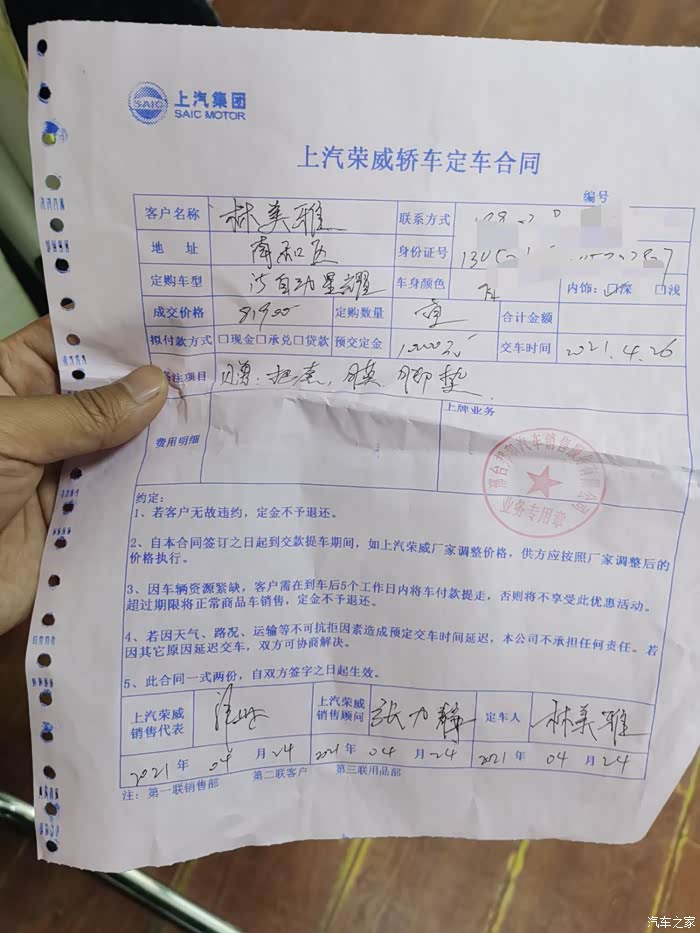 SAIC
上汽集团
SAIC MOTOR
上汽荣威轿车定车合同
编号
客户名称 林美雅 联系方式
地 址 南和区 身份证号
定购车型 自动星耀 车身颜色 内饰：□深 □浅
成交价格 81900 定购数量 壹 合计金额
拟付款方式 □现金□承兑□贷款 预交定金 10000元 交车时间 2021.4.26
备注项目 赠: 脚垫
费用明细 上牌业务
业务专用章
约定：
1、若客户无故违约，定金不予退还。
2、自本合同签订之日起到交款提车期间，如上汽荣威厂家调整价格，供方应按照厂家调整后的
价格执行。
3、因车辆资源紧缺，客户需在到车后5个工作日内将车付款提走，否则将不享受此优惠活动。
超过期限将正常商品车销售，定金不予退还。
4、若因天气、路况、运输等不可抗拒因素造成预定交车时间延迟，本公司不承担任何责任。若
因其它原因延迟交车，双方可协商解决。
5、此合同一式两份，自双方签字之日起生效。
上汽荣威
销售代表
上汽荣威
销售顾问
定车人 林美雅
2021 年 04 月 24 2021 年 04 月 24 2021 年 04 月 24
注：第一联销售部 第二联客户 第三联用品部
汽车之家